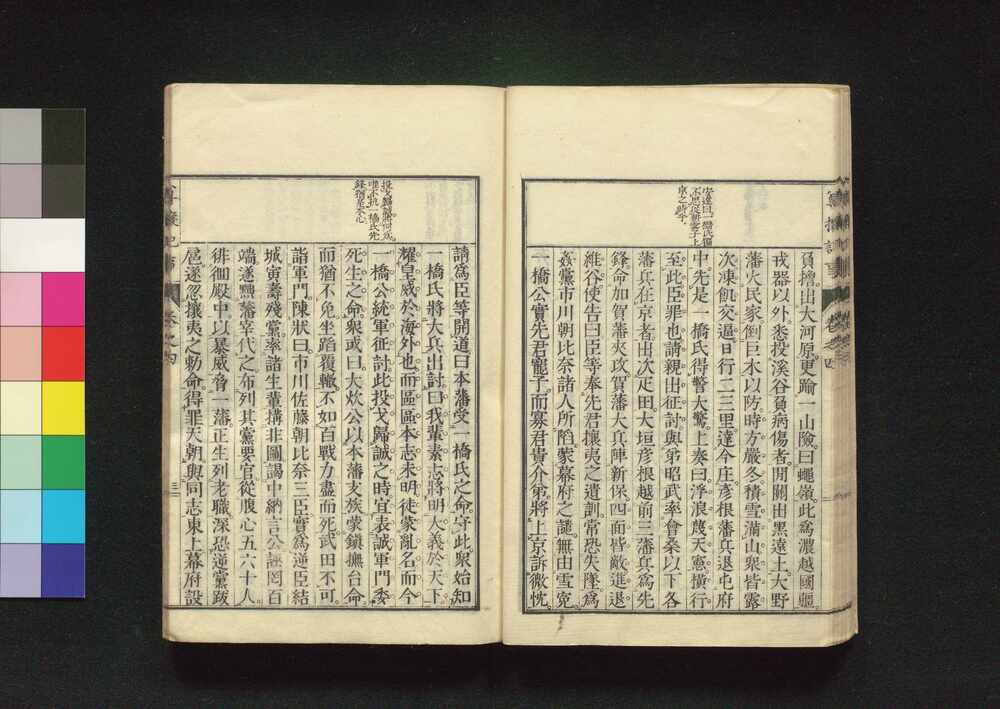 負擔。出大河原。更踰一山險。曰蠅嶺。此爲濃越國疆。
戎器以外悉投溪谷。負病傷者。開關出黑達土。大野
藩火民家倒巨木以防。時方嚴冬。積雪滿山。衆皆露
次。凍飢交逼。日行二三里。達今庄。彥根藩兵退屯府
中。先是一橋氏得警大驚。上奏曰。浮浪蔑天憲橫行
至此。臣罪也。請親出征討。與弟昭武率會桑以下各
藩兵在京者。出次疋田。大垣彥根越前三藩兵爲先
鋒。命加賀藩夾攻。賀藩大兵陣新保。四面皆敵。進退
維谷。使告曰。臣等奉先君攘夷之遺訓。常恐失墜。爲
姦黨市川朝比奈諸人所陷。蒙幕府之譴。無由雪寃。
一橋公實先君寵子。而寡君貴介弟。將上京訴微忱。
安達曰。一橋氏獨
不思從耕雲子上
京之時乎。
請爲臣等開道。曰本藩受一橋氏之命守此。衆始知
一橋氏將大兵出討。曰我輩素志。將明大義於天下。
耀皇威於海外也。而區區本志未明。徒蒙亂名。而今
一橋公統軍征討。此投戈歸誠之時。宜表誠軍門。委
死生之命。衆或曰。大炊公以本藩支族。蒙鎭撫台命。
而猶不免坐蹈覆轍。不如百戰力盡而死。武田不可。
詣軍門陳狀曰。市川佐藤朝比奈三臣實爲逆臣結
城寅壽殘黨。率諸生輩搆非圖。謁中納言公。誣罔百
端。遂黜藩宰代之。布列其黨要官。從腹心五六十人。
徘徊殿中。以暴威脅一藩。正生列老職。深恐逆黨跋
扈。遂忽攘夷之勅命。得罪天朝。與同志東上。幕府設
投戈歸誠將何成。
唯不抗一橋氏先
鋒猶是本心
尊攘紀事
卷之四
三